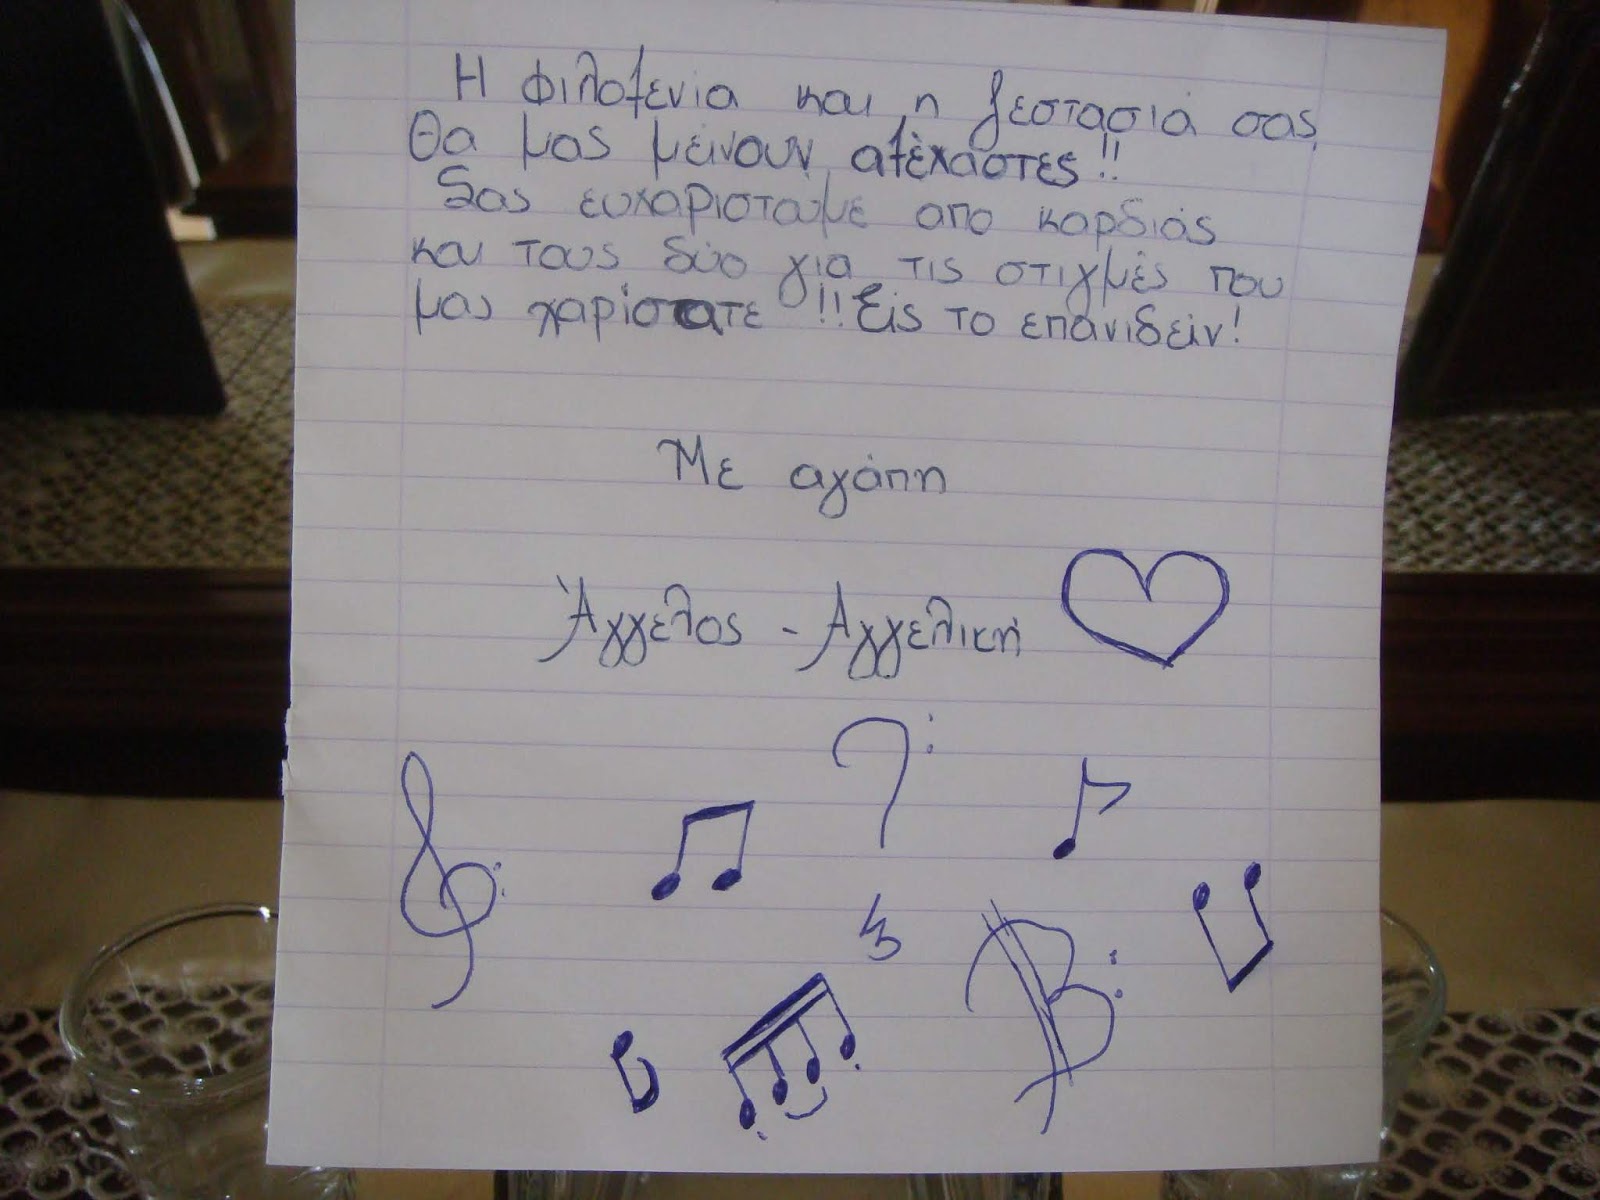 Η φιλοξενία και η ζεστασιά σας
θα μας μείνουν αξέχαστες!!
Σας ευχαριστούμε απο καρδιάς
και τους δύο για τις στιγμές που
μας χαρίσατε !! Εις το επανιδείν!
Με αγάπη
Άγγελος - Αγγελική